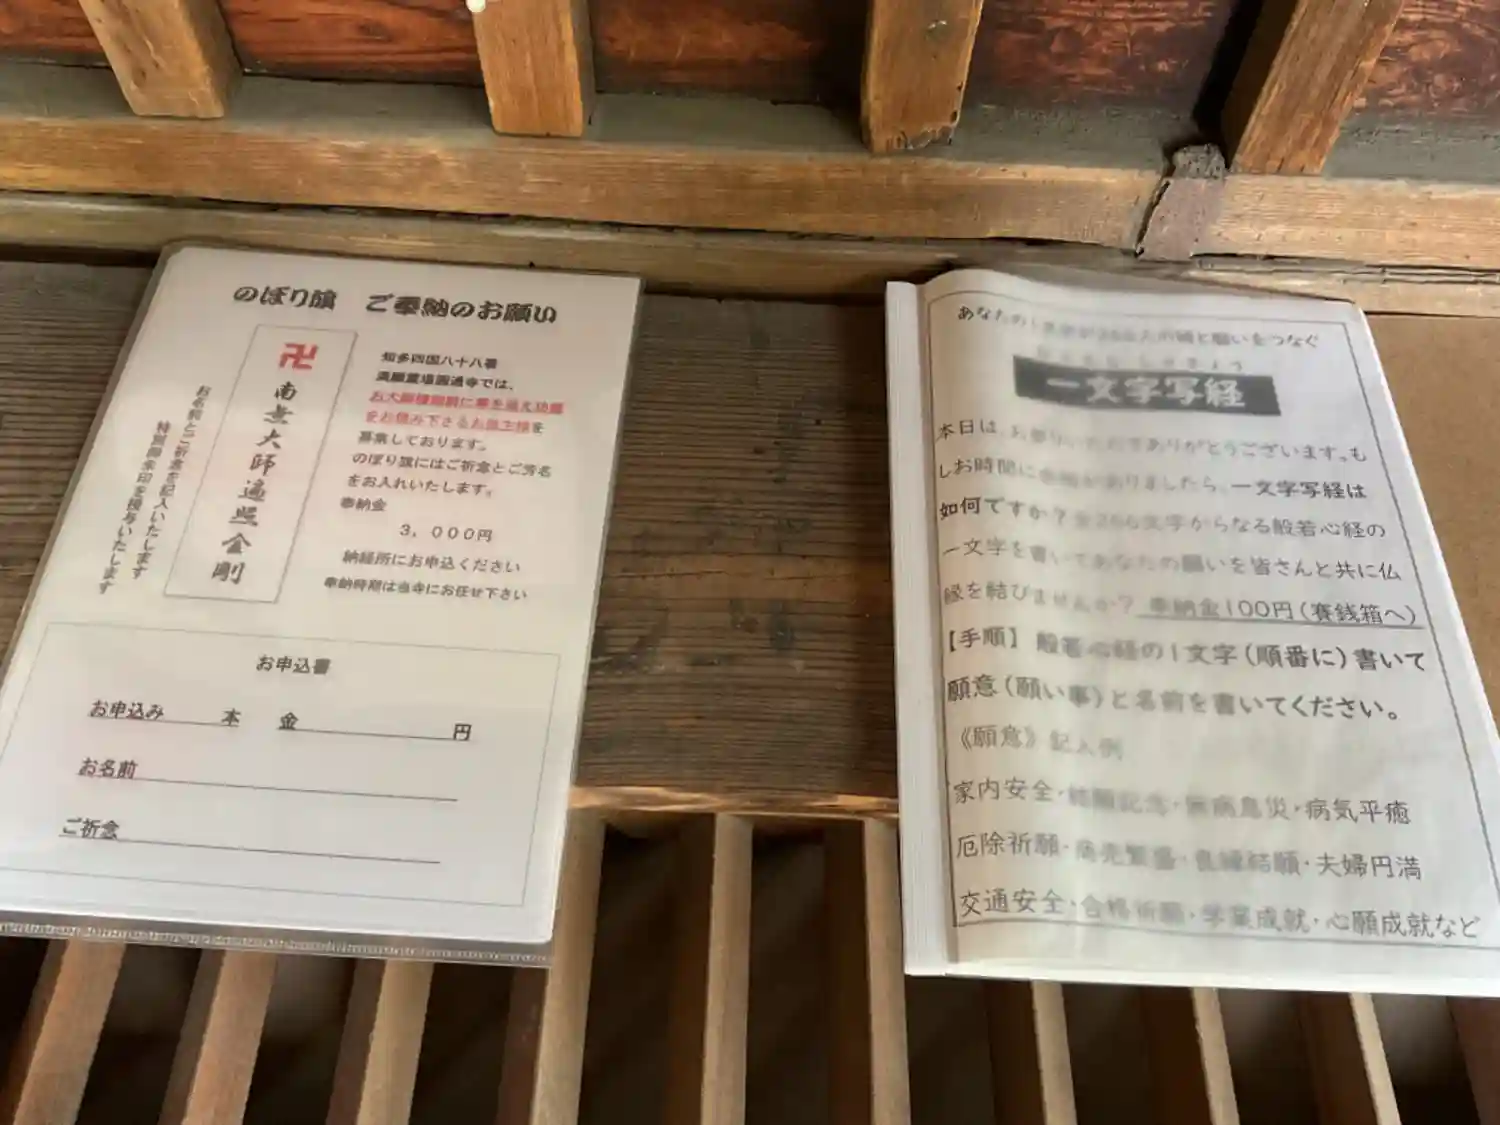 のぼり旗 ご奉納のお願い
知多四国八十八番
満願霊場圓通寺では、
お大師様御前に幕を添え功徳
をお積み下さるお施主様を
募集しております。
のぼり旗にはご祈念とご芳名
をお入れいたします。
奉納金
3,000円
納経所にお申込ください
奉納時期は当寺にお任せ下さい
卍 南無大師遍照金剛
お名前とご祈念を記入いたします
特別御朱印を授与いたします
お申込書
お申込み 本 金 円
お名前
ご祈念
あなたの1文字が 願いをつなぐ
一文字写経
本日は、お参りいただきありがとうございます。も
しお時間に余裕がありましたら、一文字写経は
如何ですか?全266文字からなる般若心経の
一文字を書いてあなたの願いを皆さんと共に仏
縁を結びませんか? 奉納金100円(賽銭箱へ)
【手順】 般若心経の1文字(順番に)書いて
願意(願い事)と名前を書いてください。
《願意》記入例
家内安全・結願記念・無病息災・病気平癒
厄除祈願・商売繁盛・良縁結願・夫婦円満
交通安全・合格祈願・学業成就・心願成就など